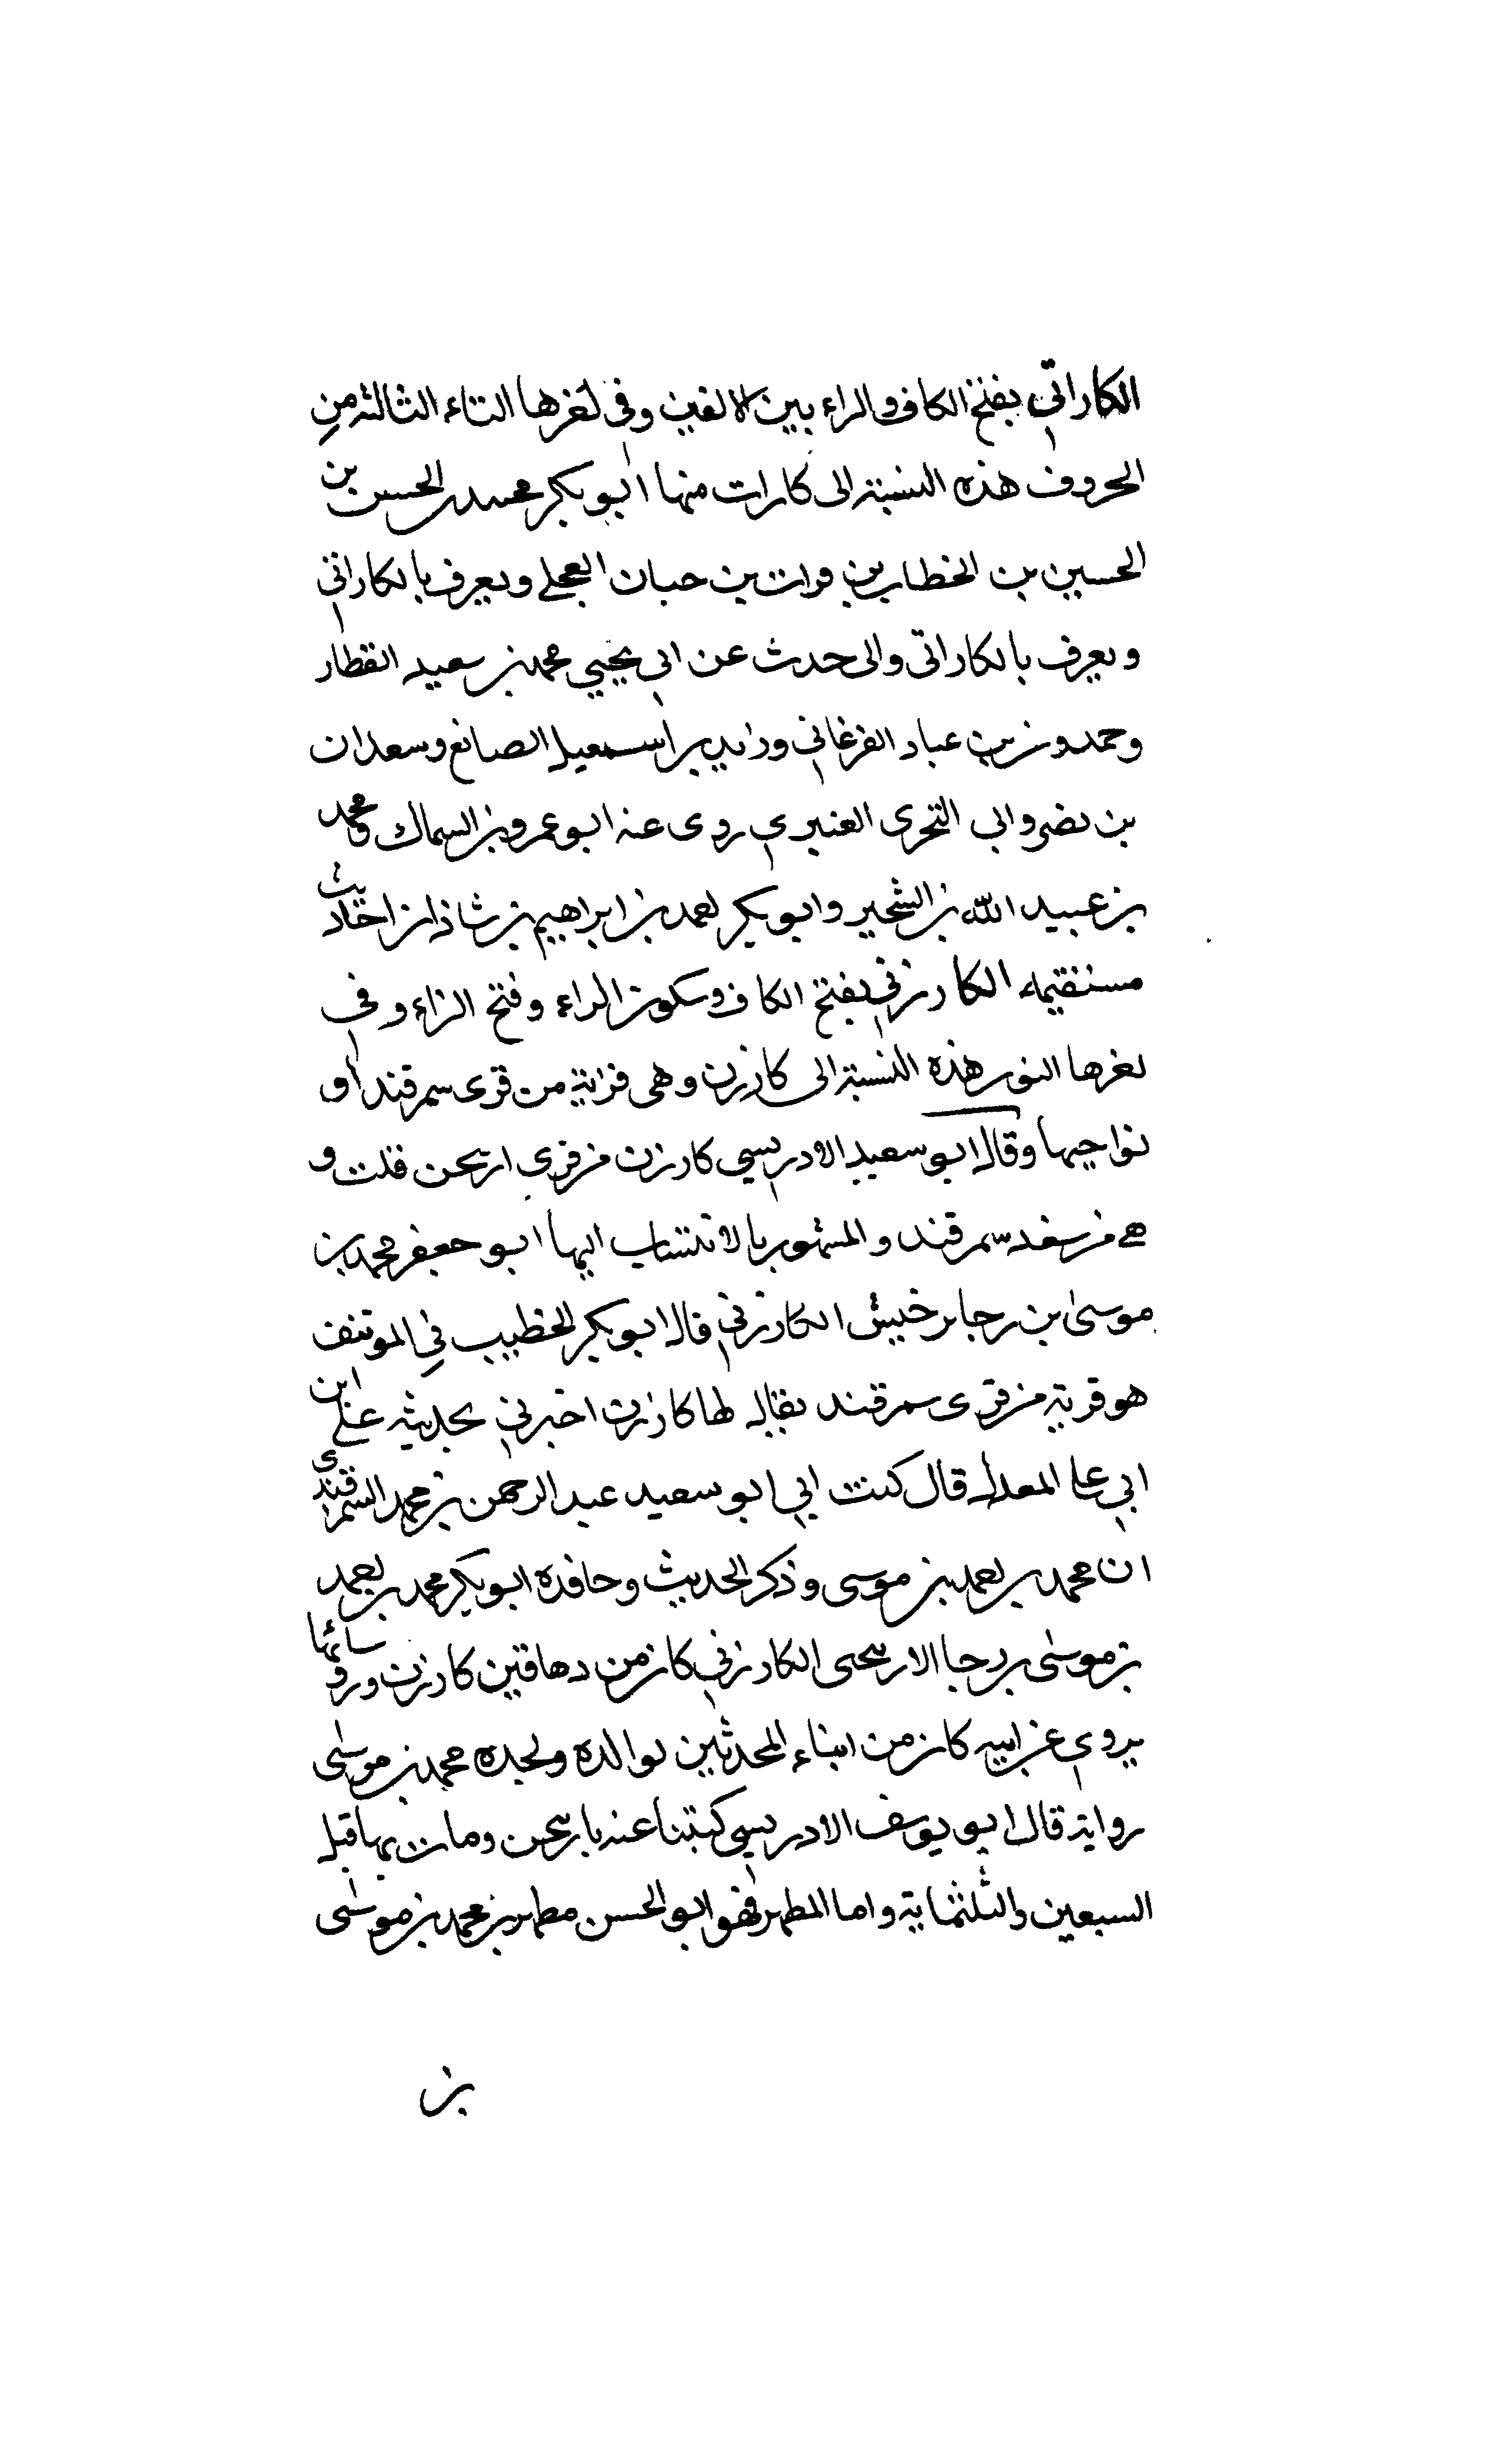 الكاراتي بفتح الكاف والراء بين الالفين وفي اخرها التاء الثالثه من
الحروف هذه النسبة الى كارات منها ابو بكر محمد بن الحسن بن
الحسين بن الخطاب بن فرات بن حبان العجلي ويعرف بالكاراتي
ويعرف بالكاراتي والى حدث عن ابي يحيي محمد بن سعيد القطار
وحمدون بن عباد الفرغاني ورايد بن اسمعيل الصانع وسعدان
بن نضر وابي التحرى العنبري روى عنه ابو عمرو بن السماك ومحمد
بن عبيد الله بن الشخير وابو بكر احمد بن ابراهيم بن شاذان احاديث
مستقيمه الكارزني بفتح الكاف وسكون الراء وفتح الزاء وفي
اخرها النون هذه النسبة الى كارزن وهى قراية من قرى سمرقند او
نواحيها وقال ابو سعيد الادريسي كارزن من قرى اربحن قلت و
هي من سغد سمرقند والمشهور بالانتساب اليها ابو جعفر محمد بن
موسى بن رجا بن خبيش الكارزني قال ابو بكر الخطيب في الموتنف
هو قرية من قرى سمرقند يقال لها كازرن اخبرني بحديثه على ابن
ابي على المعدل قال كتب الي ابو سعيد عبد الرحمن بن محمد السمرقندى
ان محمد بن احمد بن موسى وذكر الحديث وحافده ابو بكر محمد بن احمد
بن موسى بن رجا الاربحى الكارزني كان من دهاقين كارزن ورؤسائها
يروي عن ابيه كان من ابناء المحدثين لوالده ولجده محمد بن موسى
رواية قال ابو يوسف الادريسي كتبنا عنه باربحن ومات بها قبل
السبعين والثلثماية واما المطهر فهو ابو الحسن مطهر بن محمد بن موسى
بن